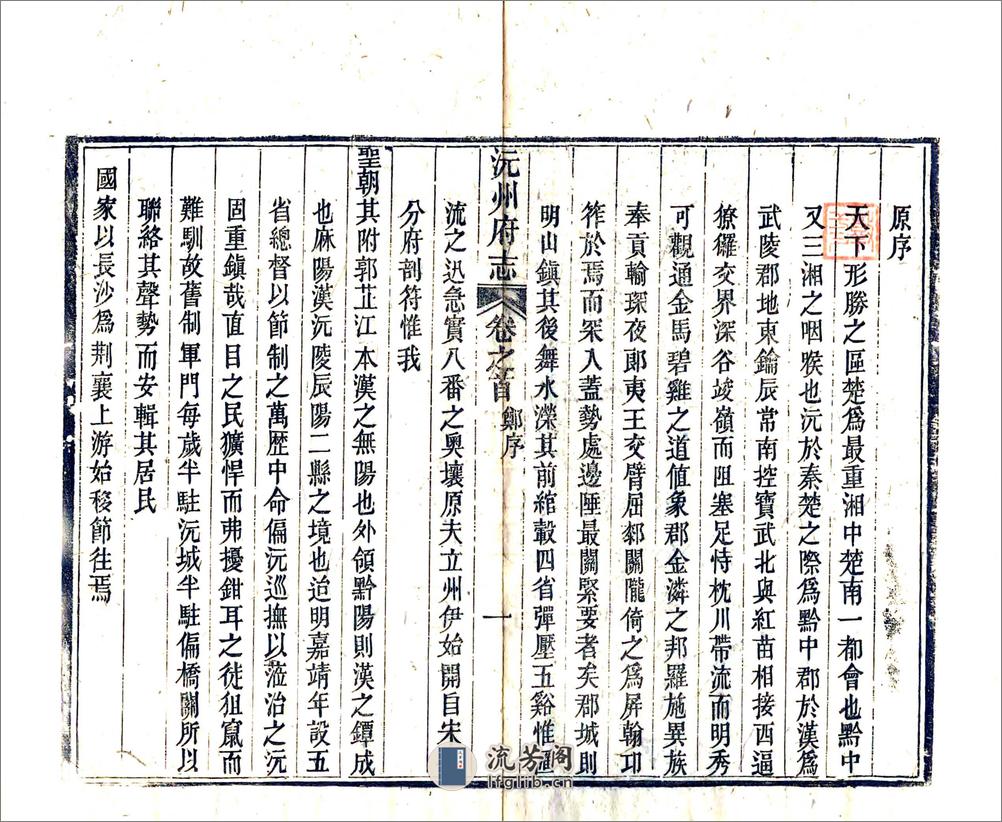 原序
天下形勝之區楚爲最重湘中楚南一都會也黔中
又三湘之咽喉也沅於秦楚之際爲黔中郡於漢爲
武陵郡地東鑰辰常南控寶武北與紅苗相接西逼
獠玀交界深谷峻嶺而阻塞足恃枕川帶流而明秀
可觀通金馬碧雞之道値象郡金潾之邦羅施異族
奉貢輸琛夜郞夷王交臂屈郄關隴倚之爲屏翰卭
筰於焉而罙入蓋勢處邊陲最關緊要者矣郡城則
明山鎭其後舞水濚其前綰轂四省彈壓五谿惟
沅州府志
卷之首
鄭序
一
流之迅急實八番之奧壤原夫立州伊始開自宋
分府剖符惟我
聖朝其附郭芷江本漢之無陽也外領黔陽則漢之鐔成
也麻陽漢沅陵辰陽二縣之境也迨明嘉靖年設五
省總督以節制之萬歷中命偏沅巡撫以蒞治之沅
固重鎭哉直目之民獷悍而弗擾鉗耳之徒狙竄而
難馴故舊制軍門每歲半駐沅城半駐偏橋關所以
聯絡其聲勢而安輯其居民
國家以長沙爲荆襄上游始移節往焉
流芳阁
lfglib.cn